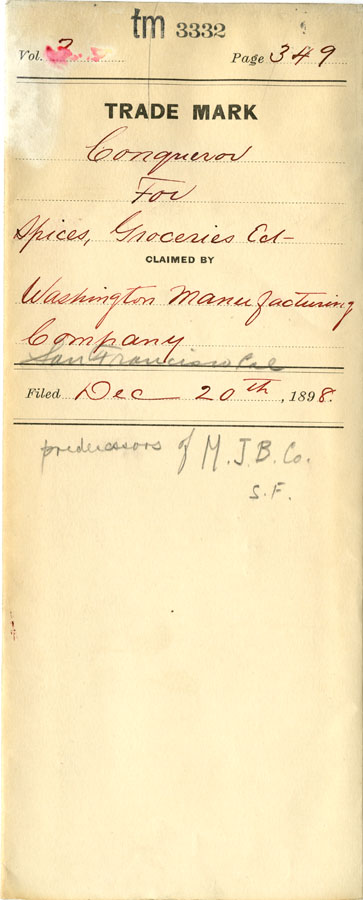 tm 3332
Vol. 2 Page 349
TRADE MARK
Conqueror
For
Spices, Groceries Ect
CLAIMED BY
Washington Manufacturing
Company
San Francisco Cal
Filed Dec 20th, 1898.
predecessors of M.J.B. Co.
S.F.